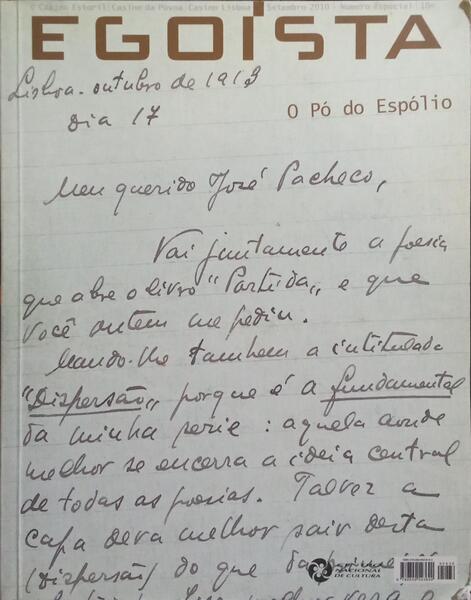 © Casino Estoril | Casino da Póvoa | Casino Lisboa | Setembro 2010 | Número Especial | 10€
EGOÍSTA
O Pó do Espólio
Lisboa - outubro de 1913
Dia 17
Meu querido José Pacheco,
Vai juntamente a poesia
que abre o livro "Partida" e que
você ontem me pediu.
Mando-lhe tambem a intitulada
"Dispersão" porque é a fundamental
da minha serie: aquela aonde
melhor se encerra a ideia central
de todas as poesias. Talvez a
capa deva melhor sair desta
(Dispersão) do que da
NACIONAL
DE CULTURA